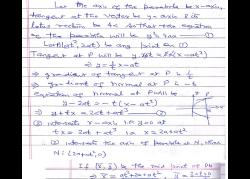 Let the axis of the parabola be x-axis,
tangent at the vertex be y-axis &
latus rectum be 4a so that the equation
of the parabola will be y²=4ax ①
Let P(at², 2at) be any point on ①
Tangent at P will be y.2at=2a(x+at²)
⇒ y = 1/t x + at
⇒ gradient of tangent at P is 1/t
⇒ gradient of normal at P is -t
equation of normal at P will be
y-2at = -t(x-at²)
⇒ y+tx = 2at+at³ ②
② intersects x-axis i.e. y=0 at
tx = 2at+at³ i.e. x=2a+at²
② intersects the axis of parabola at N
N: (2a+at², 0)
If (x̄, ȳ) be the mid point of PN